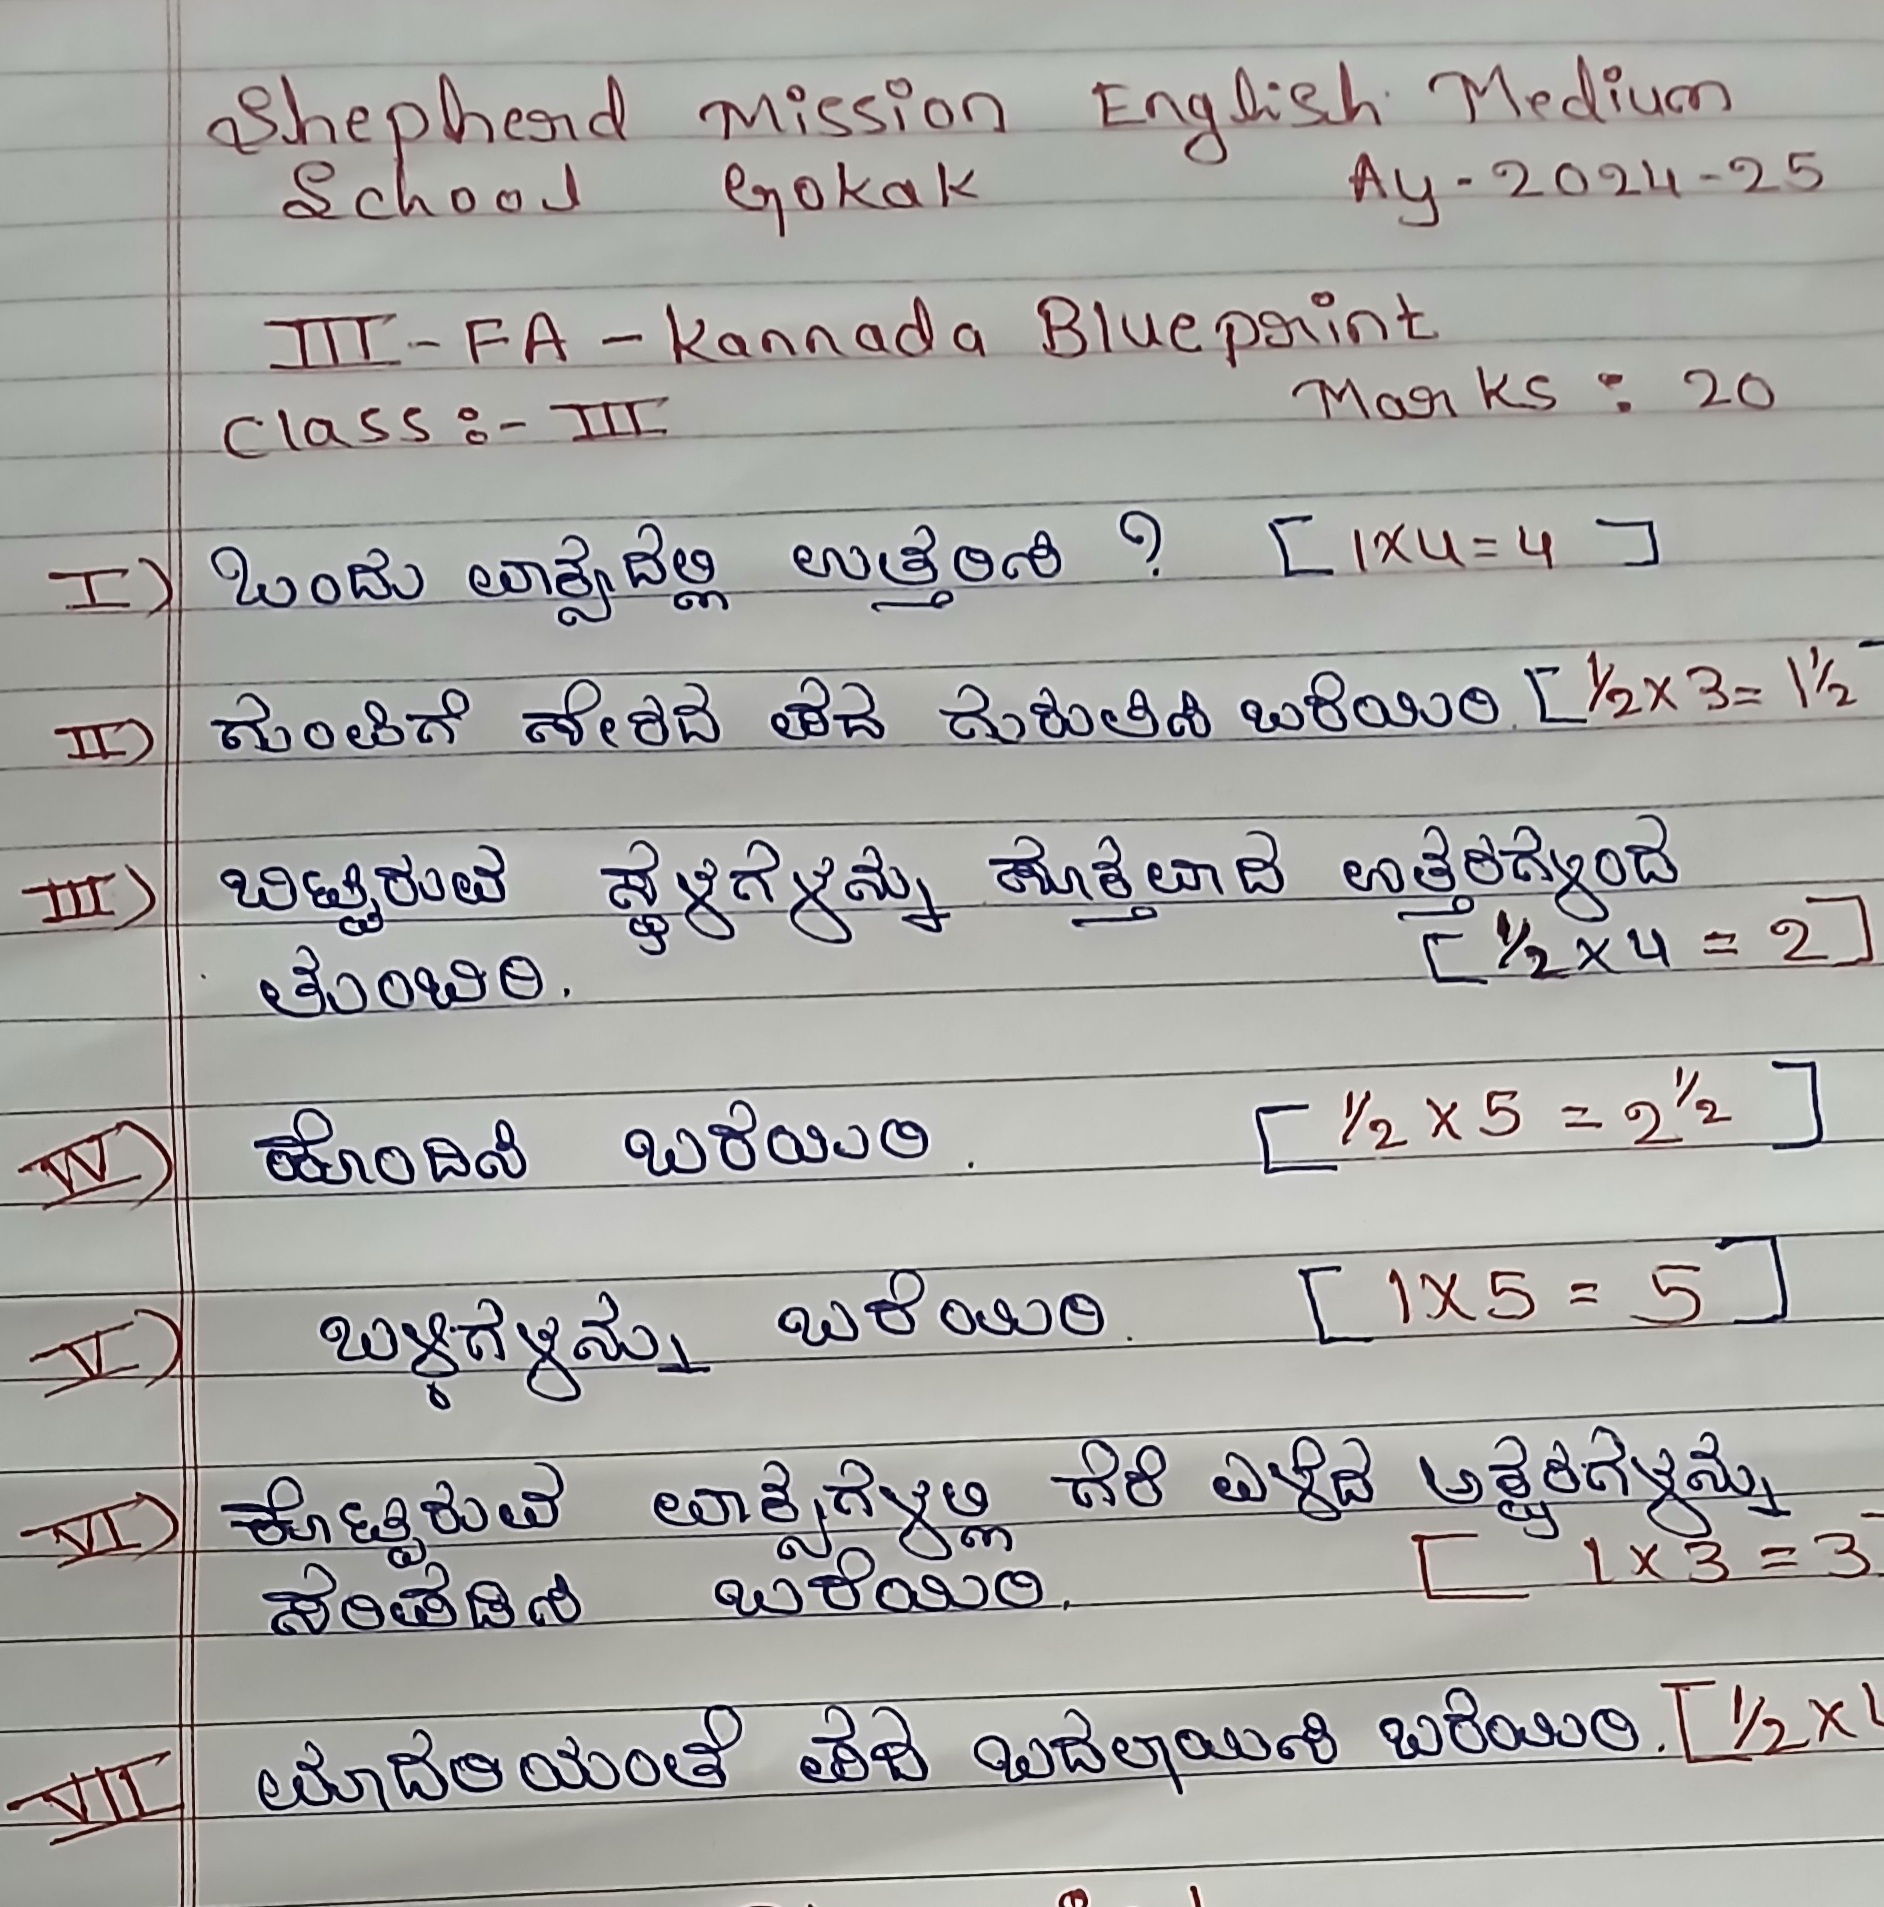 Shepherd Mission English Medium
School Gokak Ay-2024-25
III-FA-Kannada Blueprint
Class:- III Marks: 20
I) ಒಂದು ವಾಕ್ಯದಲ್ಲಿ ಉತ್ತರಿಸಿ ? [1x4=4]
II) ಗುಂಪಿಗೆ ಸೇರದ ಪದ ಗುರುತಿಸಿ ಬರೆಯಿರಿ. [½x3=1½
III) ಬಿಟ್ಟಿರುವ ಸ್ಥಳಗಳನ್ನು ಸೂಕ್ತವಾದ ಉತ್ತರಗಳಿಂದ
ತುಂಬಿರಿ. [½x4=2]
IV) ಹೊಂದಿಸಿ ಬರೆಯಿರಿ. [½x5=2½]
V) ಬಳ್ಳಿಗಳನ್ನು ಬರೆಯಿರಿ. [1x5=5]
VI) ಕೊಟ್ಟಿರುವ ವಾಕ್ಯಗಳಲ್ಲಿ ಗೆರೆ ಎಳೆದ ಅಕ್ಷರಗಳನ್ನು
ಸರಿಪಡಿಸಿ ಬರೆಯಿರಿ. [1x3=3
VII ಮಾದರಿಯಂತೆ ಪದ ಬದಲಾಯಿಸಿ ಬರೆಯಿರಿ. [½x